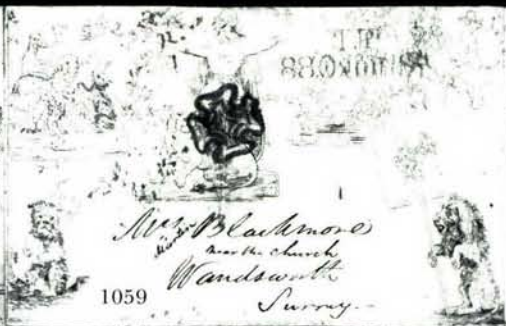 Mrs Blackmore
near the church
Wandsworth
Surrey.
1059